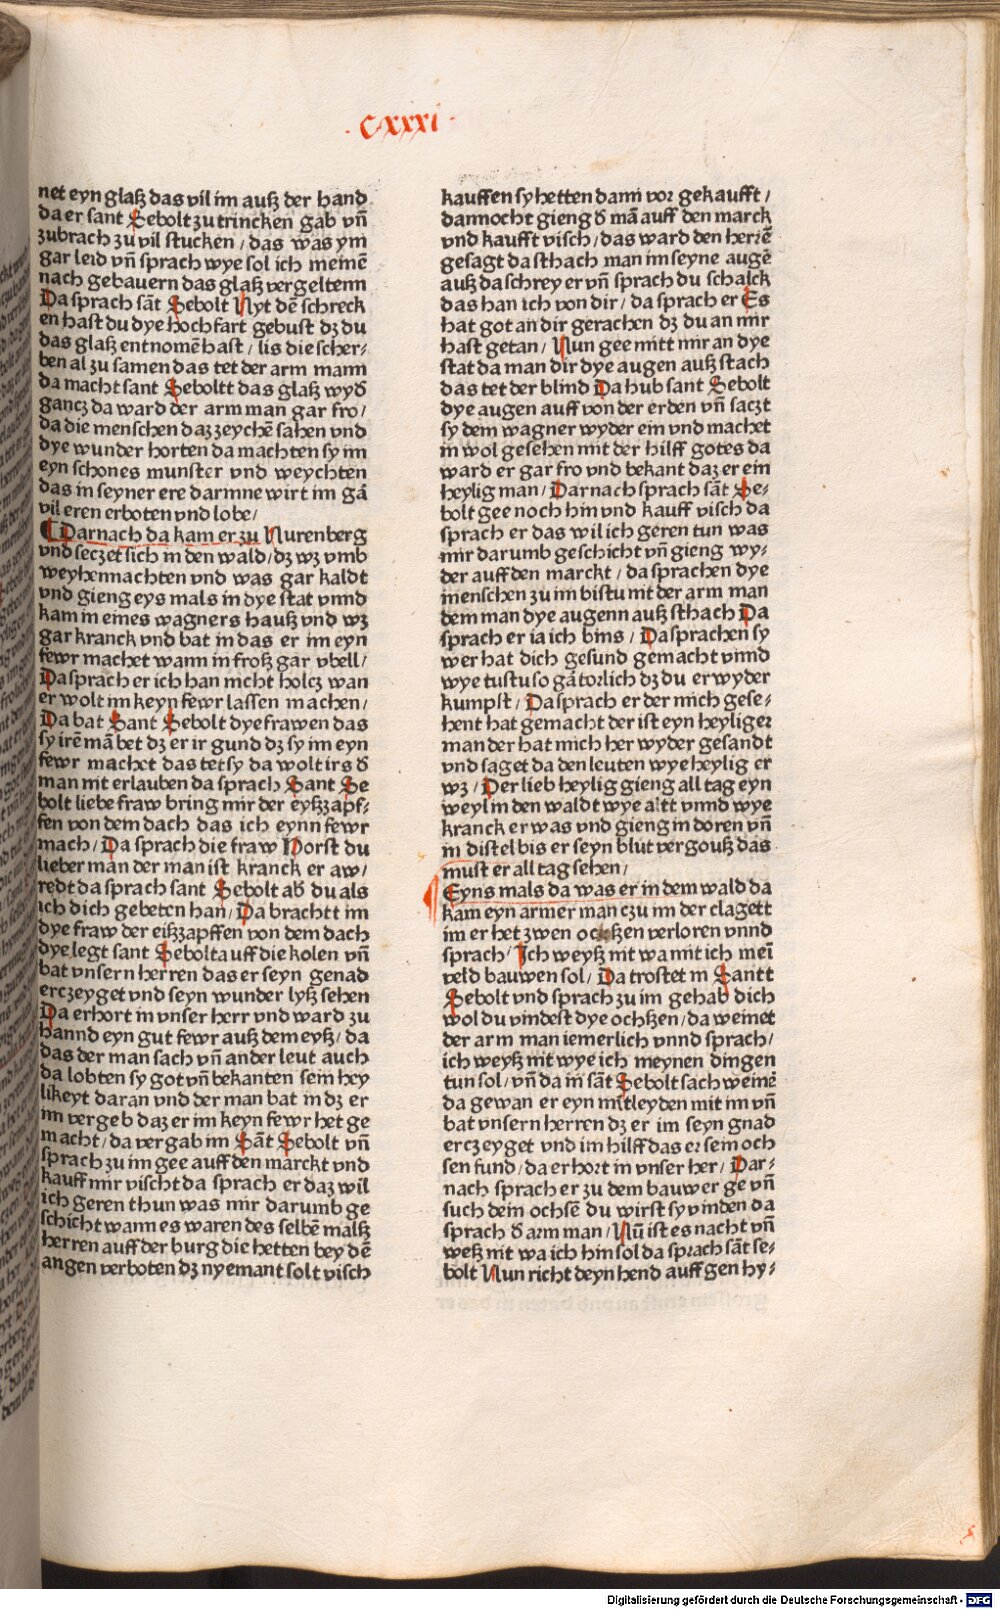 ·Cxxxi·
net eyn glaß das vil im auß der hand
da er sant Sebolt zu trincken gab vn̄
zubrach zu vil stucken / das was ym
gar leid vn̄ sprach wye sol ich meinē
nach gebauern das glaß vergeltenn
Da sprach sāt Sebolt Nyt dē schreck
en hast du dye hochfart gebust dz du
das glaß entnomē hast / lis die scher⸗
ben al zu samen das tet der arm mann
da macht sant Seboltt das glaß wyd̄
gancz da ward der arm man gar fro /
da die menschen daz zeychē sahen vnd
dye wunder horten da machten sy im
eyn schones munster vnd weychten
das in seyner ere darinne wirt im gā
vil eren erboten vnd lobe /
¶ Darnach da kam er zu Nurenberg
vnd seczet sich in den wald / dz wz vmb
weyhennachten vnd was gar kaldt
vnd gieng eys mals in dye stat vnnd
kam in eines wagners hauß vnd wz
gar kranck vnd bat in das er im eyn
fewr machet wann in froß gar vbell /
Da sprach er ich han nicht holcz wan
er wolt im keyn fewr lassen machen /
Da bat Sant Sebolt dye frawen das
sy irē mā bet dz er ir gund dz sy im eyn
fewr machet das tet sy da wolt irs d̄
man nit erlauben da sprach Sant Se
bolt liebe fraw bring mir der eyßzapf⸗
fen von dem dach das ich eynn fewr
mach / Da sprach die fraw Horst du
lieber man der man ist kranck er aw⸗
redt da sprach sant Sebolt ab du als
ich dich gebeten han / Da brachtt im
dye fraw der eißzapffen von dem dach
dye legt sant Sebolt auff die kolen vn̄
bat vnsern herren das er seyn genad
erczeyget vnd seyn wunder lyß sehen
Da erhort in vnser herr vnd ward zu
hannd eyn gut fewr auß dem eyß / da
das der man sach vn̄ ander leut auch
da lobten sy got vn̄ bekanten sein hey
likeyt daran vnd der man bat in dz er
im vergeb daz er im keyn fewr het ge
macht / da vergab im Sāt Sebolt vn̄
sprach zu im gee auff den marckt vnd
kauff mir vischt da sprach er daz wil
ich geren thun was mir darumb ge
schicht wann es waren des selbē malß
herren auff der burg die hetten bey dē
angen verboten dz nyemant solt visch
kauffen sy hetten dann vor gekaufft /
dannocht gieng d̄ mā auff den marck
vnd kaufft visch / das ward den herrē
gesagt da sthach man im seyne augē
auß da schrey er vn̄ sprach du schalck
das han ich von dir / da sprach er Es
hat got an dir gerachen dz du an mir
hast getan / Nun gee mitt mir an dye
stat da man dir dye augen auß stach
das tet der blind Da hub sant Sebolt
dye augen auff von der erden vn̄ saczt
sy dem wagner wyder ein vnd machet
in wol gesehen mit der hilff gotes da
ward er gar fro vnd bekant daz er ein
heylig man / Darnach sprach sāt Se⸗
bolt gee noch hin vnd kauff visch da
sprach er das wil ich geren tun was
mir darumb geschicht vn̄ gieng wy⸗
der auff den marckt / da sprachen dye
menschen zu im bistu nit der arm man
dem man dye augenn auß sthach Da
sprach er ia ich bins / Da sprachen sy
wer hat dich gesund gemacht vnnd
wye tustu so gā torlich dz du er wyder
kumpst / Da sprach er der mich gese⸗
hent hat gemacht der ist eyn heyliger
man der hat mich her wyder gesandt
vnd saget da den leuten wye heylig er
wz / Der lieb heylig gieng all tag eyn
weyl in den waldt wye altt vnnd wye
kranck er was vnd gieng in doren vn̄
in distel bis er seyn blut vergouß das
must er all tag sehen /
Eyns mals da was er in dem wald da
kam eyn armer man czu im der clagett
im er het zwen ochßen verloren vnnd
sprach / Ich weyß nit wa mit ich meī
veld bauwen sol / Da trostet in Santt
Sebolt vnd sprach zu im gehab dich
wol du vindest dye ochßen / da weinet
der arm man iemerlich vnnd sprach /
ich weyß nit wye ich meynen dingen
tun sol / vn̄ da in sāt Sebolt sach weinē
da gewan er eyn mitleyden mit im vn̄
bat vnsern herren dz er im seyn gnad
erczeyget vnd im hilff das er sein och
sen fund / da erhort in vnser her / Dar⸗
nach sprach er zu dem bauwer ge vn̄
such dein ochsē du wirst sy vinden da
sprach d̄ arm man / Nū ist es nacht vn̄
weß nit wa ich hin sol da sprach sāt se⸗
bolt Nun richt deyn hend auff gen hy⸗
Digitalisierung gefördert durch die Deutsche Forschungsgemeinschaft - DFG